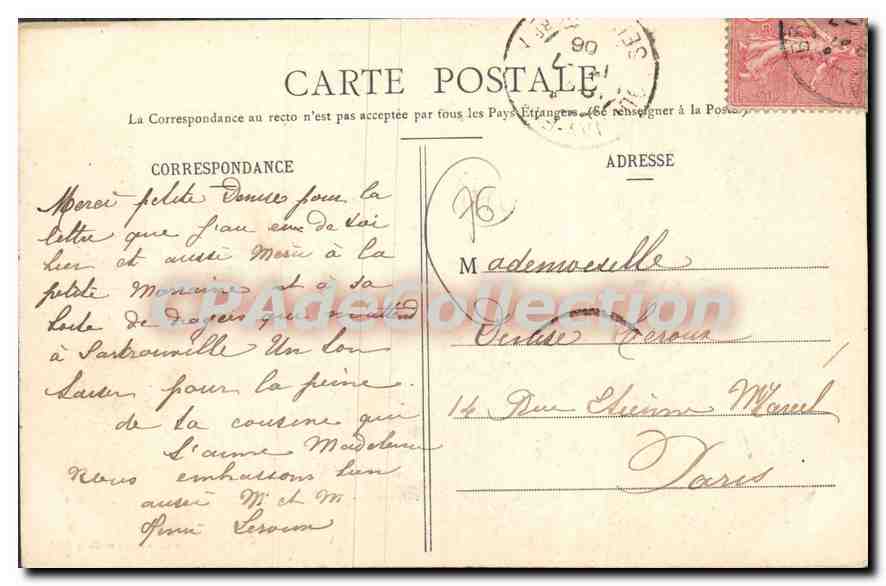 CARTE POSTALE
La Correspondance au recto n'est pas acceptée par tous les Pays Étrangers. (Se renseigner à la Poste).
CORRESPONDANCE
ADRESSE
Merci petite Denise pour la
lettre que j'ai eue de toi
hier et aussi Merci à la
petite Marraine et à sa
boite de dragées qui m'attend
à Sartrouville Un bon
baiser pour la peine
de ta cousine qui
t'aime Madeleine
Nous embrassons bien
aussi M. et M.
Henri Leroux
76
Mademoiselle
Denise Leroux
14 Rue Etienne Marcel
Paris
CPAdeCollection